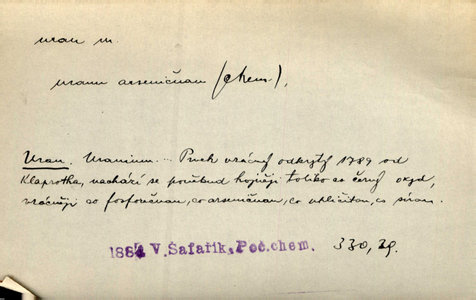 uran m.
uranu arseničnan (chem),
Uran. Uranium... Prvek vzácný odkrytý 1789 od
Klaprotha, nachází se poněkud hojněji toliko co černý oxyd,
vzácněji co fosforečnan, co arseničnan, co uhličitan, co síran.
1884 V. Šafařík, Poč. chem. 330, 29.